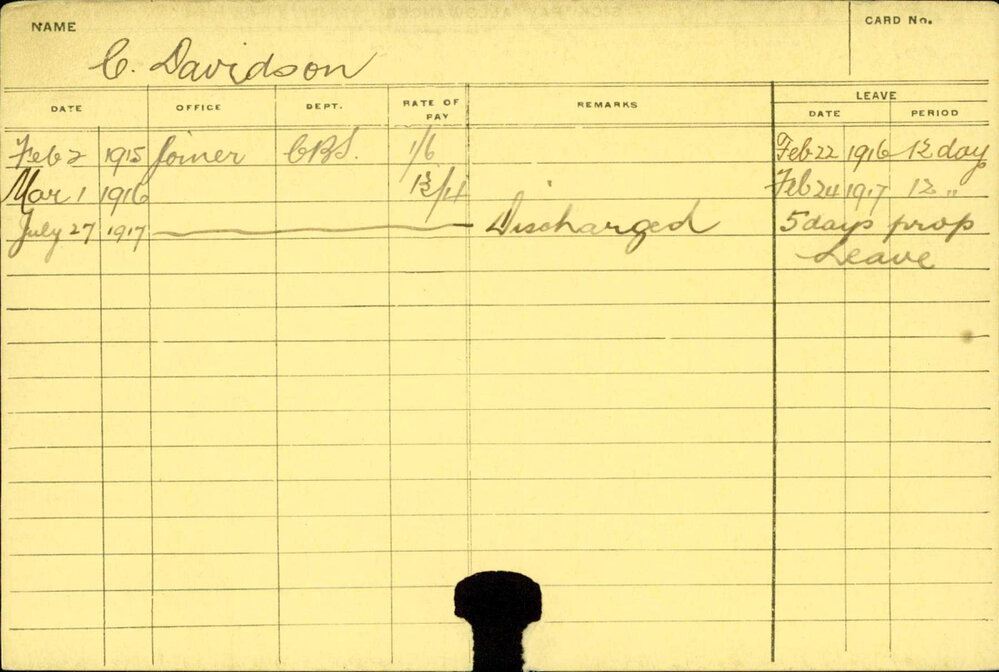 NAME
CARD No.
C. Davidson
DATE OFFICE DEPT. RATE OF PAY REMARKS LEAVE
DATE PERIOD
Feb 2 1915 Joiner CBS. 1/6 Feb 22 1916 12 day
Mar 1 1916 Feb 24 1917 12 "
July 27 1917 Discharged 5 days prop
Leave